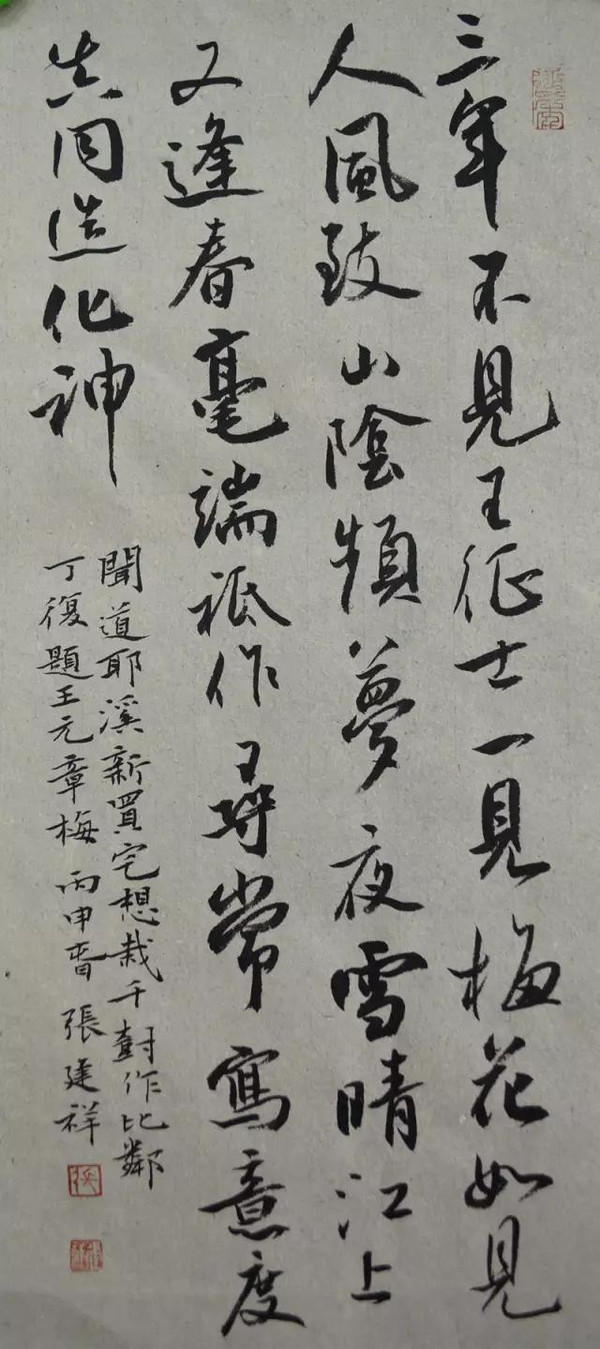 三年不見王征士一見梅花如見
人風致山陰頻夢夜雪晴江上
又逢春毫端祇作尋常寫意度
真同造化神
聞道耶溪新買宅想栽千樹作比鄰
丁復題王元章梅丙申春張建祥